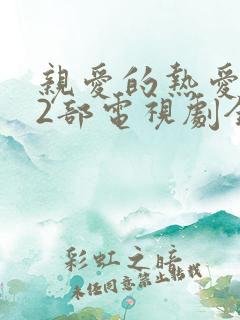 親愛的熱愛
2部電視劇全
彩虹之暗
未经同意禁止转载